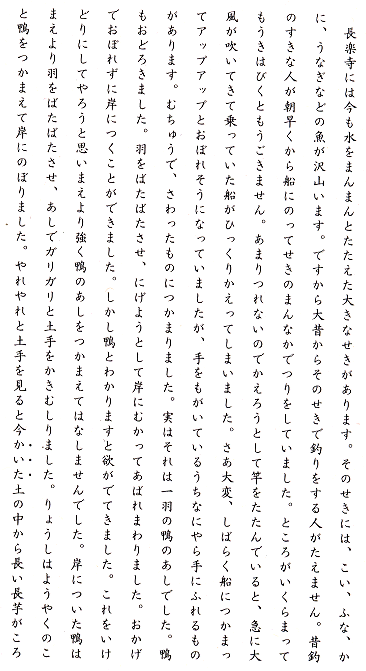 長楽寺には今も水をまんまんとたたえた大きなせきがあります。そのせきには、こい、ふな、か
に、うなぎなどの魚が沢山います。ですから大昔からそのせきで釣りをする人がたえません。昔釣
のすきな人が朝早くから船にのってせきのまんなかでつりをしていました。ところがいくらまって
もうきはびくともうごきません。あまりつれないのでかえろうとして竿をたたんでいると、急に大
風が吹いてきて乗っていた船がひっくりかえってしまいました。さあ大変、しばらく船につかまっ
てアップアップとおぼれそうになっていましたが、手をもがいているうちなにやら手にふれるもの
があります。むちゅうで、さわったものにつかまりました。実はそれは一羽の鴨のあしでした。鴨
もおどろきました。羽をばたばたさせ、にげようとして岸にむかってあばれまわりました。おかげ
でおぼれずに岸につくことができました。しかし鴨とわかりますと欲がでてきました。これをいけ
どりにしてやろうと思いまえより強く鴨のあしをつかまえてはなしませんでした。岸についた鴨は
まえより羽をばたばたさせ、あしでガリガリと土手をかきむしりました。りょうしはようやくのこ
と鴨をつかまえて岸にのぼりました。やれやれと土手を見ると今かいた土の中から長い長芋がころ